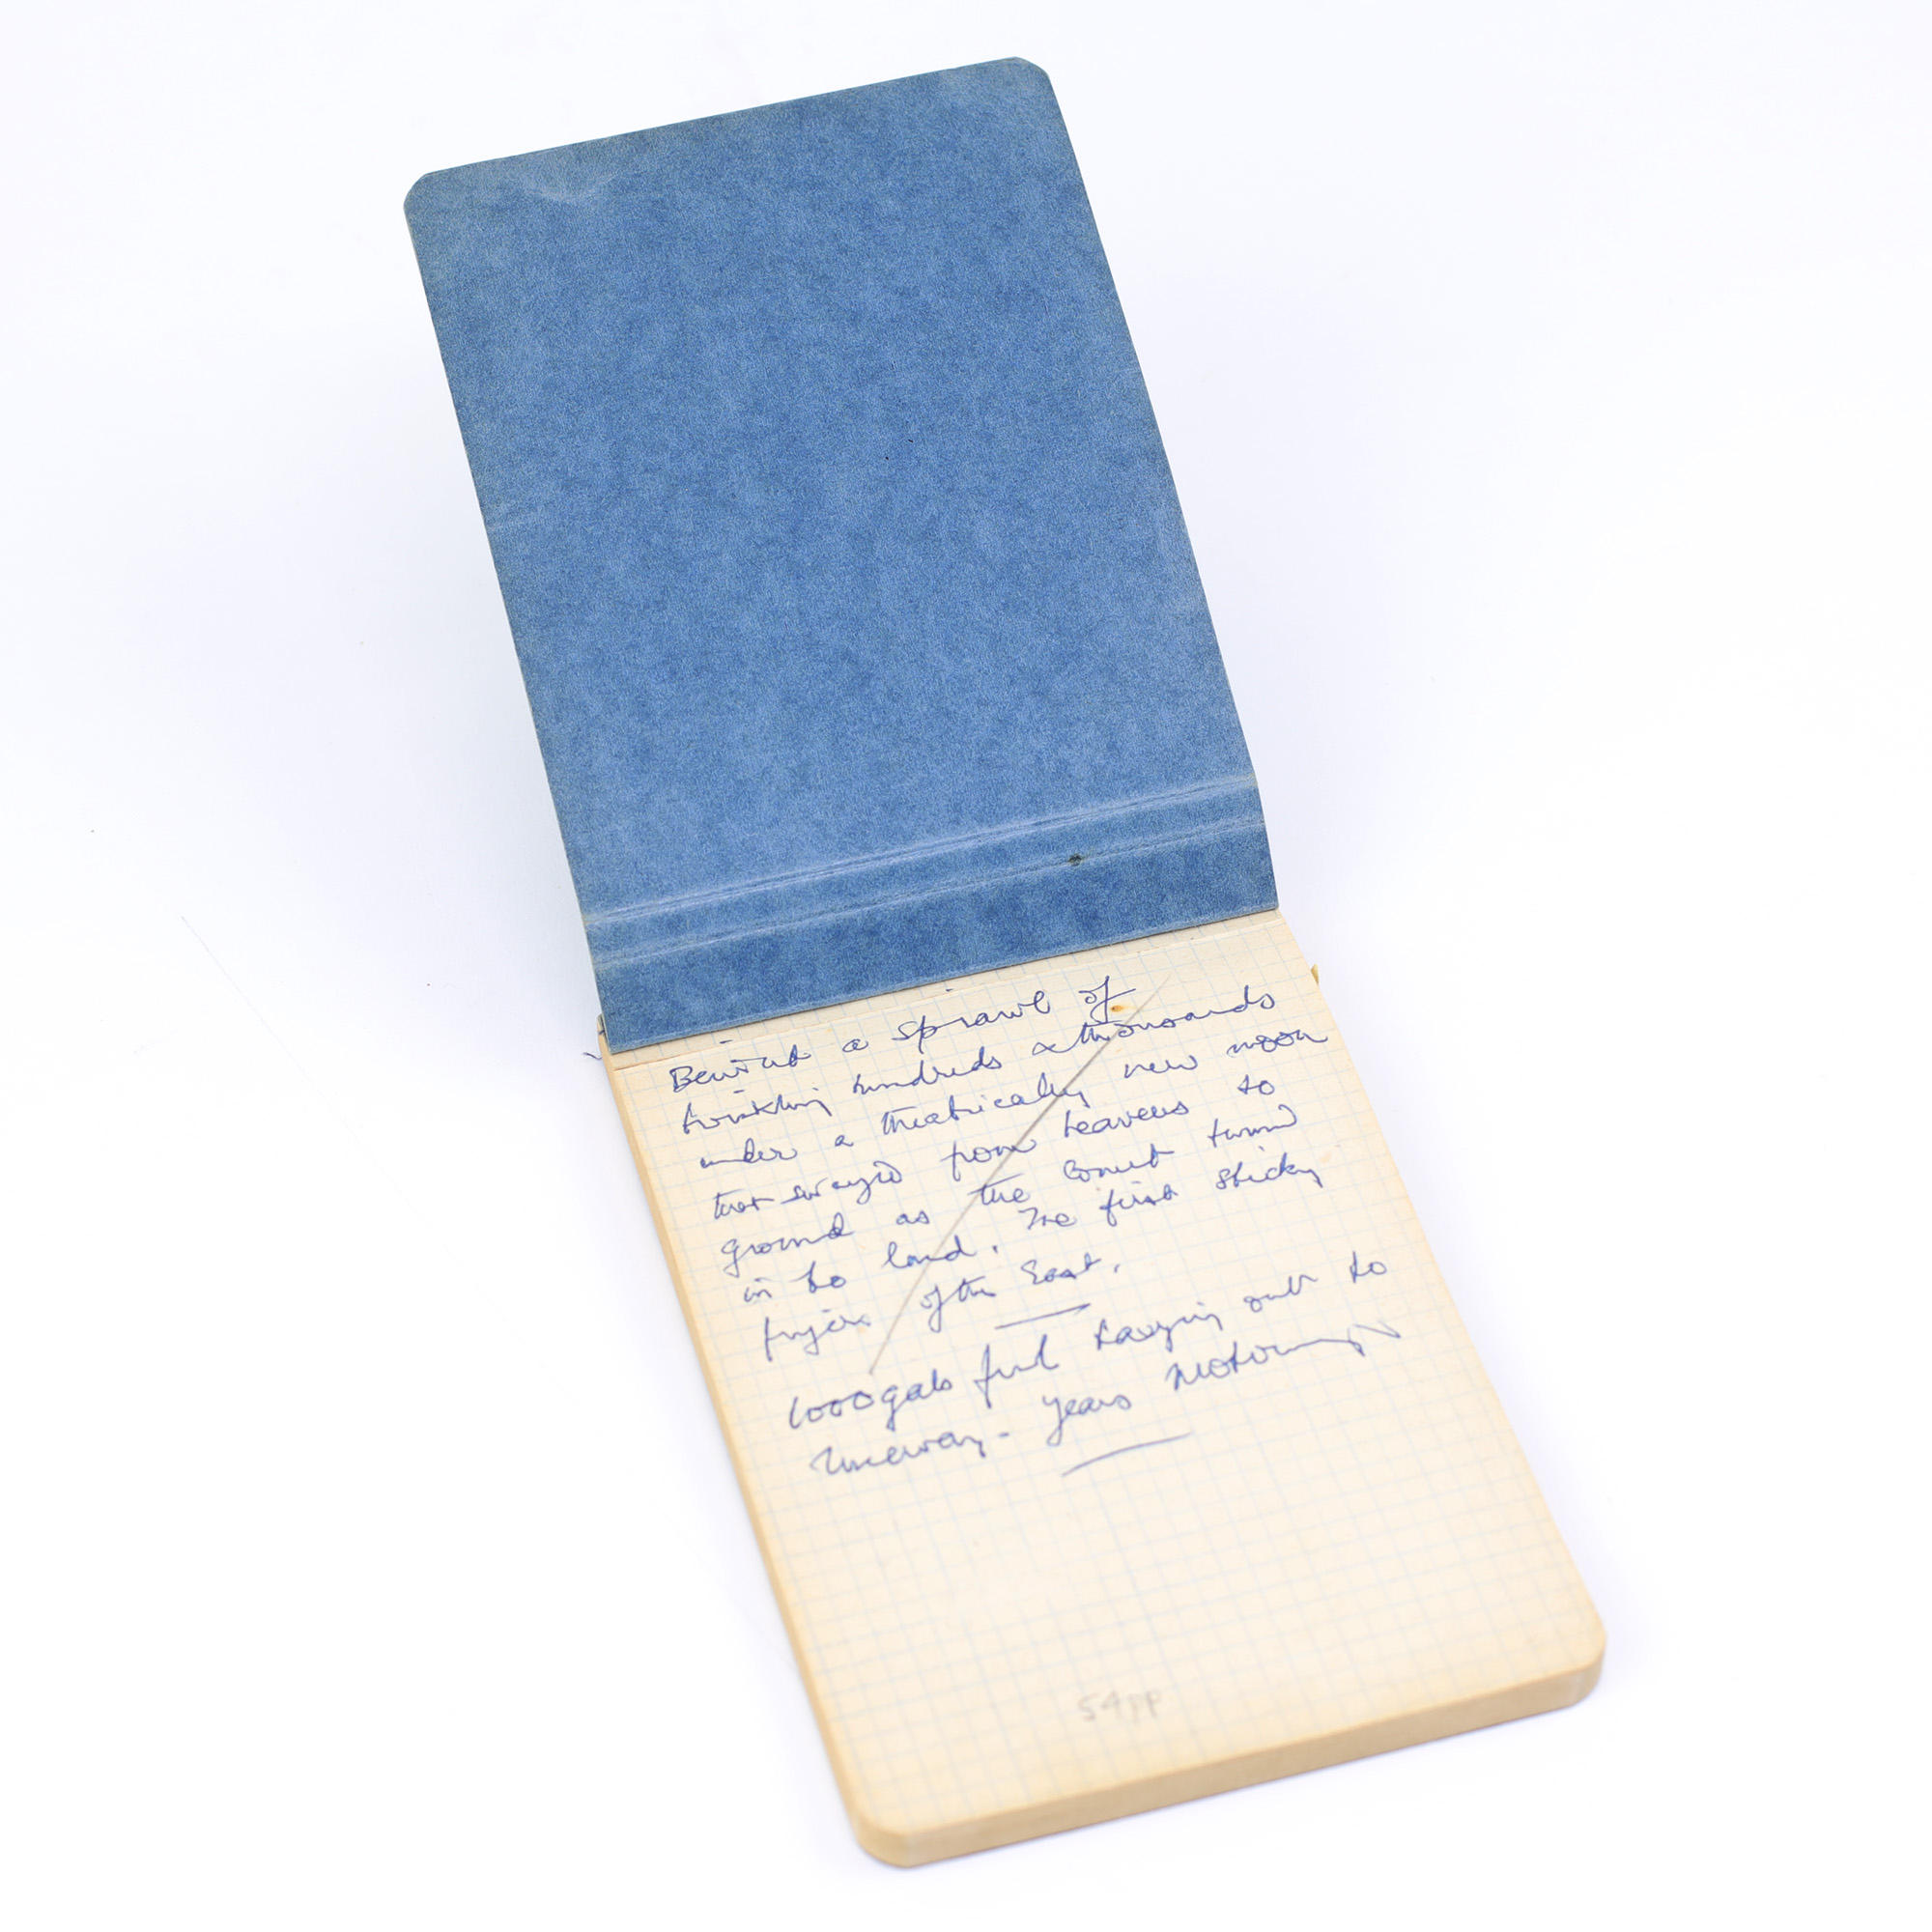 Beirut a sprawl of
twinkling hundreds & thousands
under a theatrically new moon
that swayed from heavens to
ground as the Comet turned
in to land. The first sticky
fingers of the East.
1000 gals fuel taxying out to
runway - years motoring
54pp